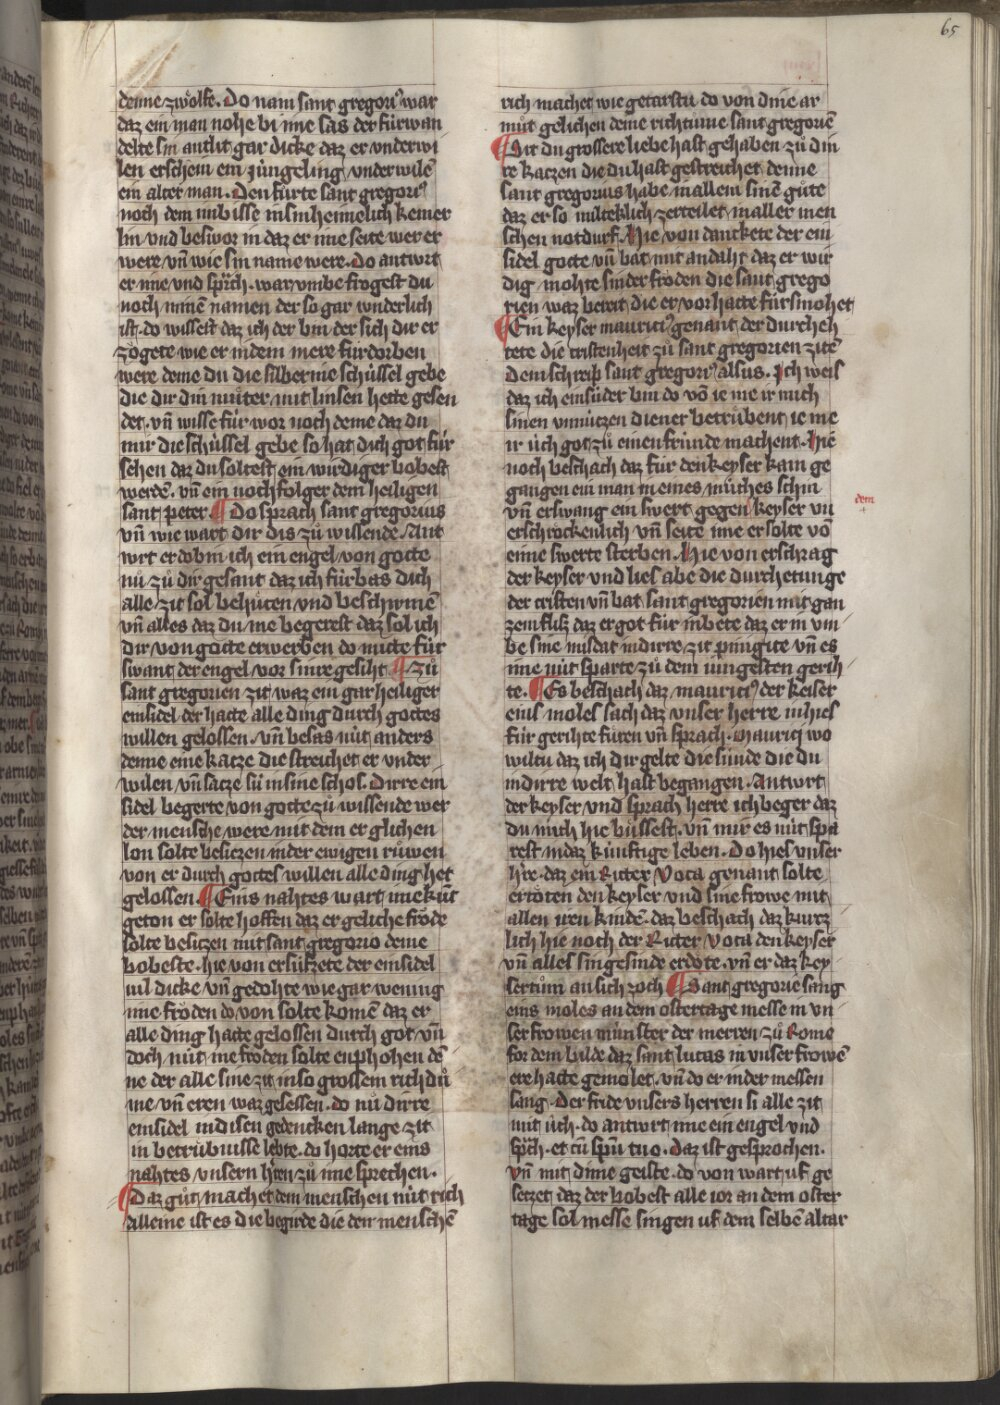 65
denne zwoͤlfe. Do nam sant gregoriꝰ war
daz ein man nohe bi ime sas der fúrwan
delte sin antlit gar dicke daz er vnderwi
len erschein ein júngeling vnderwilen
ein alter man. Den fůrte sant gregoriꝰ
noch dem imbisse in sin heimelich kemer
lin vnd beswor in daz er ime seite wer er
were vn̄ wie sin name were. Do antwrt
er ime vnd sprach. war vmbe frogest du
noch minē namen der so gar wnderlich
ist. do wissest daz ich der bin der sich dir er
zoͤgete wie er in dem mere fúrdorben
were deme du die silberine schússel gebe
die dir din můter mit linsen hette gesen
det. vn̄ wisse fúr wor noch deme daz du
mir die schússel gebe so hat dich got fúr
sehen daz du soltest ein wirdiger bobest
werdē. vn̄ ein nochfolger dem heiligen
sant peter. ¶ Do sprach sant gregorius
vn̄ wie wart dir dis zů wissende. Ant
wrt er do bin ich ein engel von gotte
nů zů dir gesant daz ich fúrbas dich
alle zit sol behůten vnd beschirmē
vn̄ alles daz du ime begerest daz sol ich
dir von gotte erwerben do mitte fúr
swant der engel vor sinre gesiht ¶ Zů
sant gregorien zit waz ein gar heiliger
einsidel der hatte alle ding durch gottes
willen gelossen. vn̄ besas nút anders
denne eine katze die streichet er vnder
wilen vn̄ satze sú in sine schos. Dirre ein
sidel begerte von gotte zů wissende wer
der mensche were mit dem er glichen
lon solte besitzen in der ewigen růwen
von er durch gottes willen alle ding het
gelossen ¶ Eins nahtes wart ime kunt
geton er solte hoffen daz er geliche froͤde
solte besitzen mit sant gregorio deme
bobeste. hie von ersúfzete der einsidel
uil dicke vn̄ gedohte wie gar wening
ime froͤden do von solte komē daz er
alle ding hatte gelossen durch got vn̄
doch nút me froͤden solte enphohen dē
ne der alle sine zit in so grossem richtů
me vn̄ eren waz gesessen. do nů dirre
einsidel in disen gedencken lange zit
in betrůbnisse lebte. do horte er eins
nahtes vnsern herren zů ime sprechen.
¶ Daz gůt machet dem menschen nút rich
alleine ist es die begirde die den menschē
rich machet wie getarstu do von dine ar
můt gelichen deme richtume sant gregoriē
¶ Sit du grossere liebe hast gehaben zů din
re katzen die du hast gestreichet denne
sant gregorius habe in allem sinē gůte
daz er so milteklich zerteilet in aller men
schen notdurf. Hie von danckete der ein
sidel gotte vn̄ bat mit andaht daz er wir
dig mohte sin der froͤden die sant grego
rien waz bereit die er vor hatte fúrsmohet
¶ Ein keyser mauriciꝰ genant der durcheh
tete die cristenheit zů sant gregorien zitē
Dem schreip sant gregoriꝰ alsus. Ich weis
daz ich ein súder bin do vō ie me ir mich
sinen vnnútzen diener betrůbent ie me
ir úch got zů einen frúnde machent. Hie
noch beschach daz fúr den keyser kam ge
gangen ein man in eines múches schin
vn̄ erswang ein swert gegen keyser vn̄
dem
erschrockenlich vn̄ seite ime er solte vō
eime swerte sterben. Hie von erschrag
der keyser vnd lies abe die durchetunge
der cristen vn̄ bat sant gregorien mit gan
zem flis daz er got fúr in bete daz er in vm
be sine missdat in dirre zit pinigite vn̄ es
ime nút sparte zů dem iungesten gerih
te. ¶ Es beschach daz mauriciꝰ der keiser
eins moles sach daz vnser herre in hies
fúr gerihte fůren vn̄ sprach. Maurici wo
wiltu daz ich dir gelte die súnde die du
in dirre welt hast begangen. Antwrt
der keyser vnd sprach herre ich beger daz
du mich hie bůssest. vn̄ mir es nút spa
rest in daz kúnftige leben. Do hies vnser
h̄re. daz ein Ritter Voca genant solte
ertoͤten den keyser vnd sine frowe mit
allen iren kindē. daz beschach daz kurtz
lich hie noch der Ritter voca den keyser
vn̄ alles sin gesinde erdote. vn̄ er daz key
sertům an sich zoch ¶ Sant gregorie sang
eins moles an dem ostertage messe in vn
ser frowen múnster der merren zů Rome
for dem bilde daz sant lucas in vnser frowē
ere hatte gemolet. vn̄ do er in der messen
sang. Der fride vnsers herren si alle zit
mit úch. do antwrt ime ein engel vnd
sprach. et cū spū tuo. Daz ist gesprochen.
vn̄ mit dime geiste. do von wart uf ge
setzet daz der bobest alle ior an dem oster
tage sol messe singen uf dem selbē altar